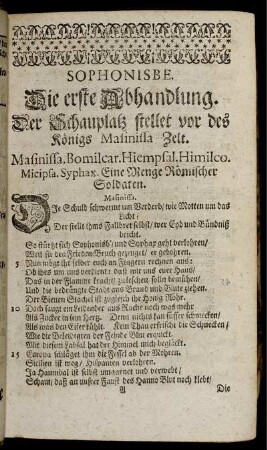 SOPHONISBE.
Die erste Abhandlung.
Der Schauplatz stellet vor des
Königs Masinissa Zelt.
Masinissa. Bomilcar. Hiempsal. Himilco.
Micipsa. Syphax. Eine Menge Römischer
Soldaten.
Masinissa.
DIe Schuld schwermt um Verderb / wie Motten um das
Licht:
Der stellt ihms Fallbret selbst / wer Eyd und Bündniß
bricht.
So stürtzt sich Sophonisb' und Syphax geht verlohren /
Weil sie den Frieden-Bruch gezeuget / er gebohren.
Nun mögt ihr selber euch an Fingern rechnen aus:
Ob ihrs um uns verdient: daß wir uns euer Haus /
Das in der Flamme kracht / zuleschen solln bemühen /
Und die bedrängte Stadt aus Brand und Blute ziehen.
Der Bienen Stachel ist zugleich ihr Honig Röhr.
10 Doch saugt ein Leidender aus Rache noch was mehr
Als Zucker in sein Hertz. Denn nichts kan süsser schmecken /
Als was den Eiser kühlt. Kein Thau erfrischt die Schnecken /
Wie die Beleidigten der Feinde Blut erquickt.
Mit diesem Labsal hat der Himmel mich beglückt.
15 Caropa schläget ihm die Fessel ab der Mohren.
Sicilien ist weg / Hispanien verlohren.
Ja Hannibal ist selbst umgarnet und verwebt /
Scham / daß an unsrer Faust des Hanno Blut noch klebt /
A Die